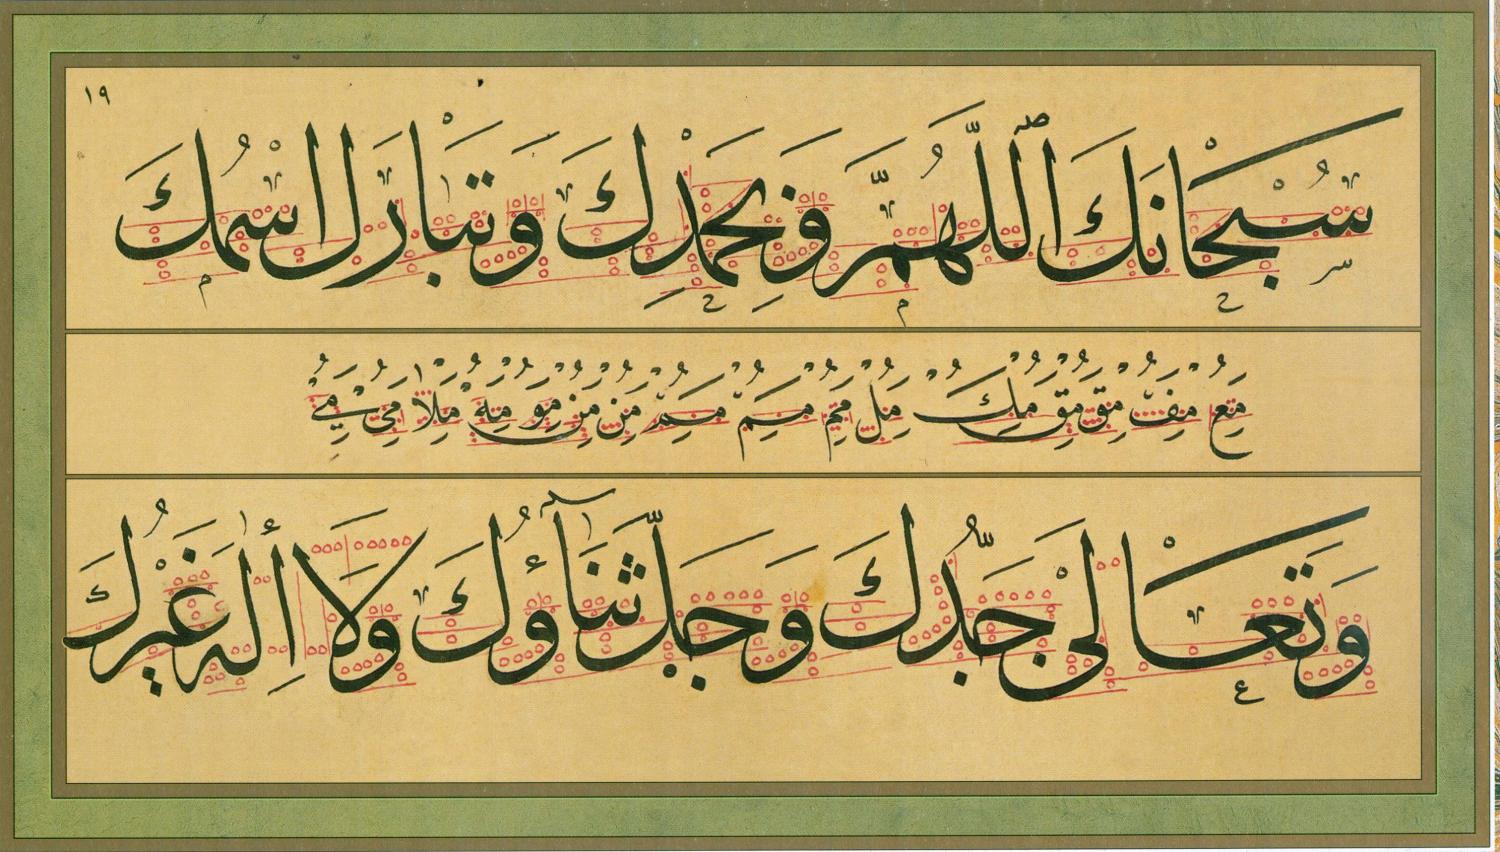 ١٩
سُبْحَانَكَ اللّٰهُمَّ وَبِحَمْدِكَ وَتَبَارَكَ اسْمُكَ
مع مف مق مق مك مل مم مسم من من مو مه ملا مي مي
وَتَعَالٰى جَدُّكَ وَجَلَّ ثَنَآؤُكَ وَلَا اِلٰهَ غَيْرُكَ